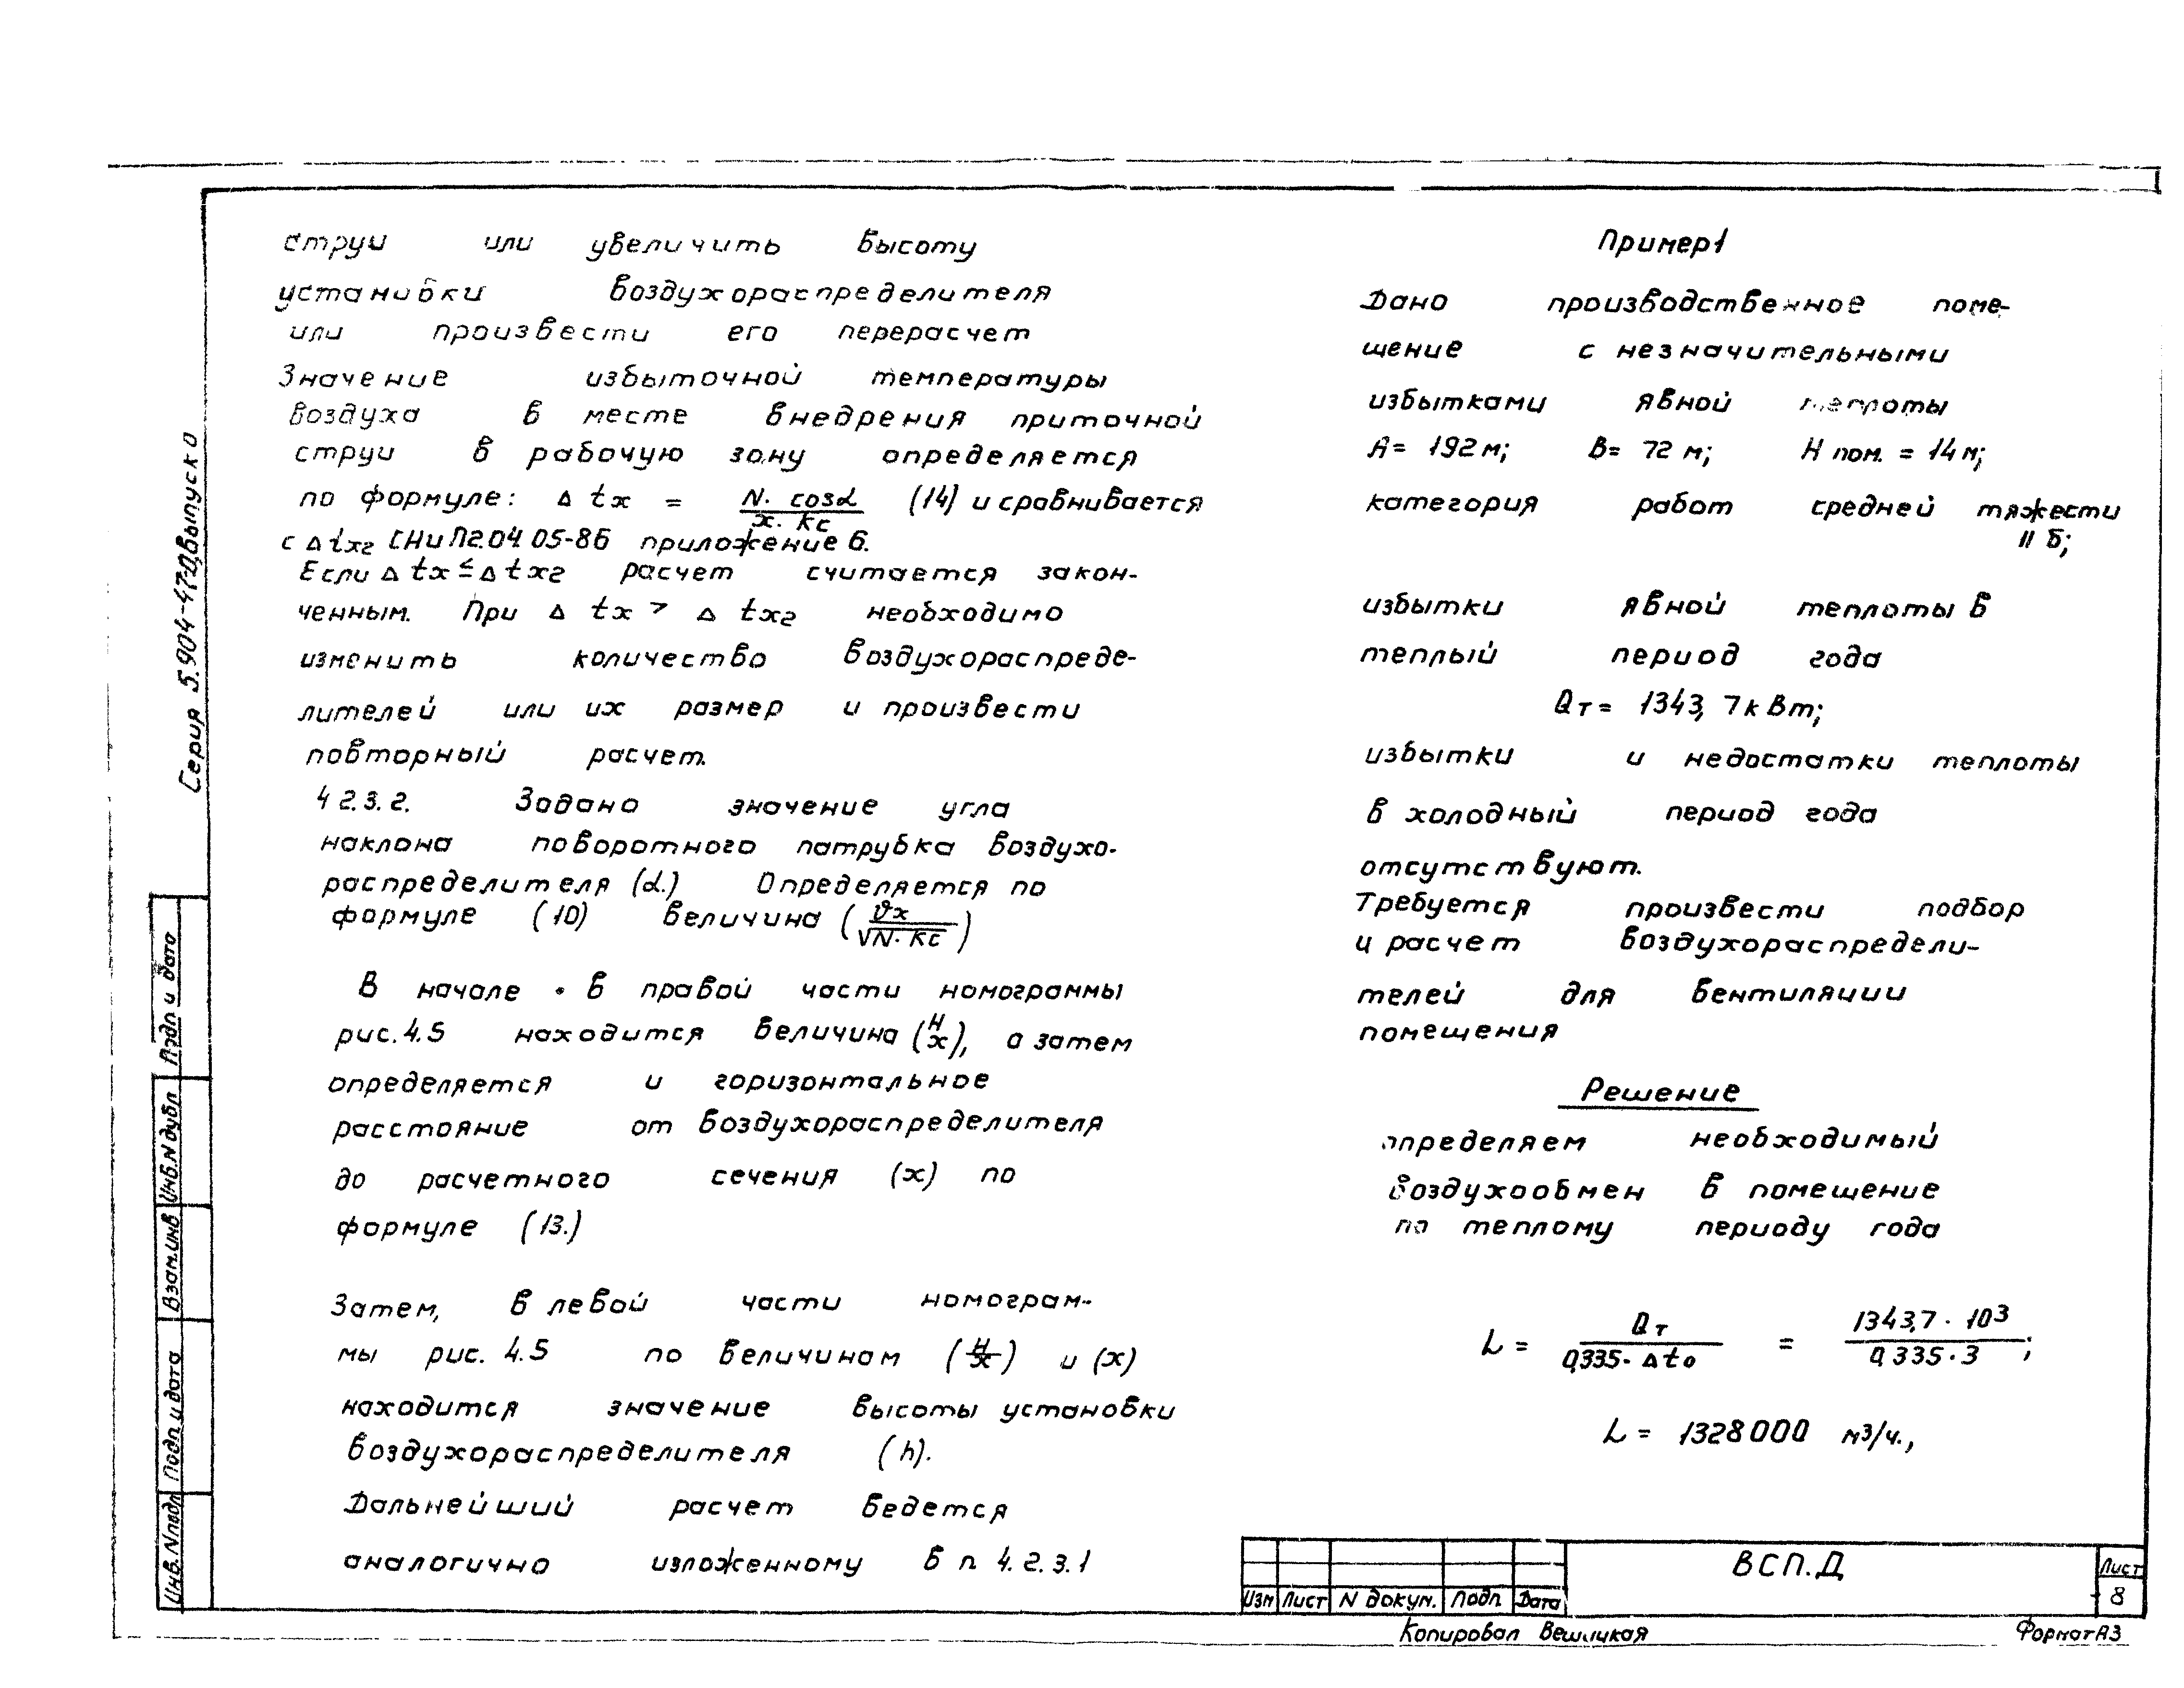 струи или увеличить высоту
установки воздухораспределителя
или произвести его перерасчет
Значение избыточной температуры
воздуха в месте внедрения приточной
струи в рабочую зону определяется
по формуле: Δ tx = N. cosα / x. Kc (14) и сравнивается
с Δ txг СНиП2.04.05-86 приложение 6.
Если Δ tx ≤ Δ txг расчет считается закон-
ченным. При Δ tx > Δ txг необходимо
изменить количество воздухораспреде-
лителей или их размер и произвести
повторный расчет.
4 2.3.2. Задано значение угла
наклона поворотного патрубка воздухо-
распределителя (α.) Определяется по
формуле (10) величина (ϑx / √N. Kc)
В начале в правой части номограммы
рис. 4.5 находится величина (H/x), а затем
определяется и горизонтальное
расстояние от воздухораспределителя
до расчетного сечения (x) по
формуле (13.)
Затем, в левой части номограм-
мы рис. 4.5 по величинам (H/x) и (x)
находится значение высоты установки
воздухораспределителя (h).
Дальнейший расчет ведется
аналогично изложенному в п 4.2.3.1
Пример 1
Дано производственное поме-
щение с незначительными
избытками явной теплоты
A= 192 м; B= 72 м; H пом. = 14 м;
категория работ средней тяжести
II б;
избытки явной теплоты в
теплый период года
Qт = 1343,7 кВт;
избытки и недостатки теплоты
в холодный период года
отсутствуют.
Требуется произвести подбор
и расчет воздухораспредели-
телей для вентиляции
помещения
Решение
определяем необходимый
воздухообмен в помещение
по теплому периоду года
L = Qт / 0,335. Δto = 1343,7 · 10³ / 0,335 · 3 ;
L = 1328000 м³/ч.,
Серия 5.904-47-0, выпуск 0
Подп и дата
Инв.N дубл
Взам.инв
Подп. и дата
Инв.N подл
Изм Лист N докум. Подп Дата
ВСП.Д
Лист
8
Копировал
Формат А3